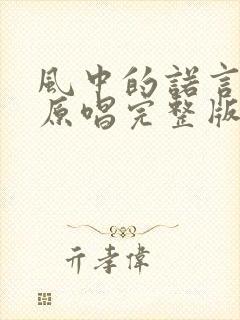 風中的諾言
原唱完整版
亓孝偉